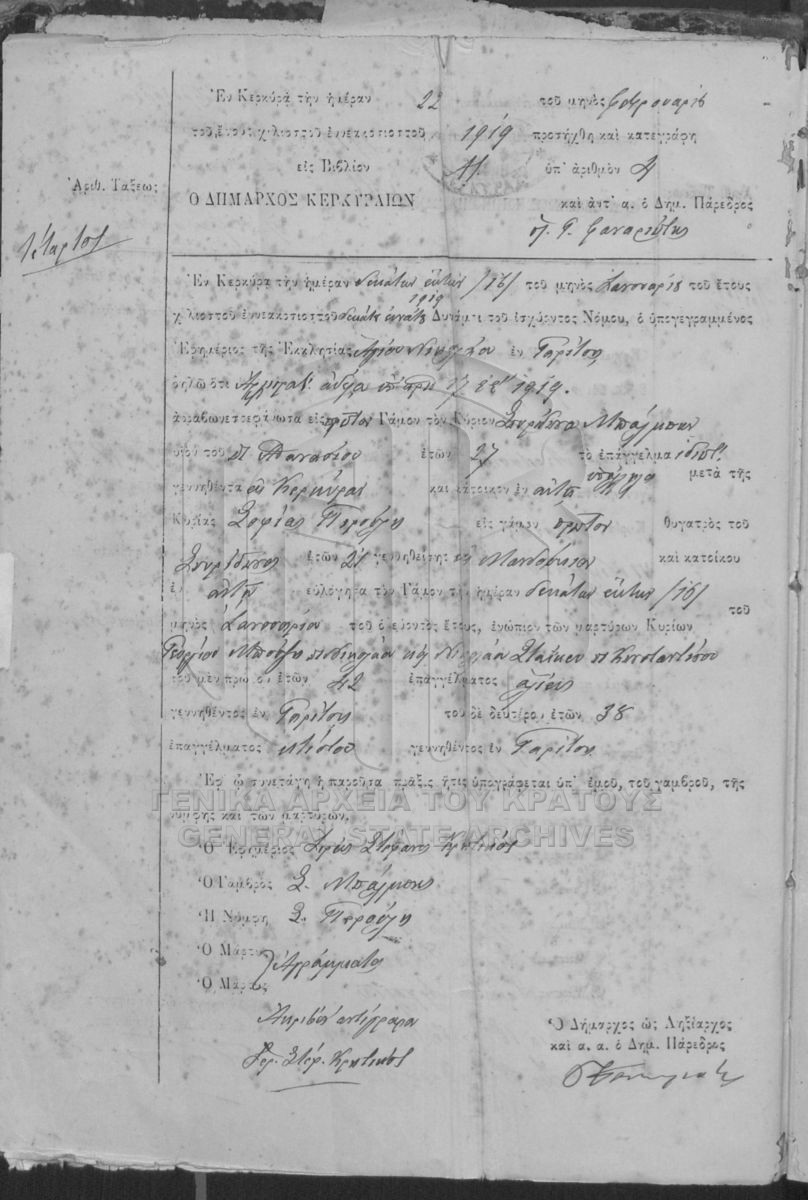 Ἐν Κερκύρᾳ τὴν ἡμέραν 22 τοῦ μηνὸς Φεβρουαρίου
τοῦ ἔτους χιλιοστοῦ ἐννεακοσιοστοῦ 1919 προσήχθη καὶ κατεγράφη
εἰς Βιβλίον ὑπ' ἀριθμὸν 4
Ἀριθ. Τάξεως
Ο ΔΗΜΑΡΧΟΣ ΚΕΡΚΥΡΑΙΩΝ καὶ ἀντ' α. ὁ Δημ. Πάρεδρος
Τέταρτος
Ἐν Κερκύρᾳ τὴν ἡμέραν δεκάτην ἕκτην /16/ τοῦ μηνὸς Ἰανουαρίου τοῦ ἔτους
1919
χιλιοστοῦ ἐννεακοσιοστοῦ δεκάτου ἐννάτου Δυνάμει τοῦ ἰσχύοντος Νόμου, ὁ ὑπογεγραμμένος
Ἐφημέριος τῆς Ἐκκλησίας Ἁγίου Νικολάου ἐν Γαρίτσῃ
δηλῶ ὅτι ἄδεια 17 1919.
ἀρραβωνεστεφάνωσα εἰς πρῶτον Γάμον τὸν Κύριον Σπυρίδωνα Μπάλμπην
υἱὸν τοῦ π Ἀθανασίου ἐτῶν 27 τὸ ἐπάγγελμα ἰδιωτ.
ὑπάλληλο μετὰ τῆς
γεννηθέντα ἐν Κερκύρᾳ καὶ κάτοικον ἐν αὐτῇ
Κυρίας Σοφίας Περούλη εἰς γάμον πρῶτον θυγατρὸς τοῦ
Σπυρίδωνος ἐτῶν 21 γεννηθείσης ἐν καὶ κατοίκου
ἐν αὐτῇ εὐλόγησα τὸν Γάμον τὴν ἡμέραν δεκάτην ἕκτην /16/ τοῦ
μηνὸς Ἰανουαρίου τοῦ ὁδεύοντος ἔτους, ἐνώπιον τῶν μαρτύρων Κυρίων
Γεωργίου π Νικολάου καὶ Νικολάου π Κωνσταντίνου
τοῦ μὲν πρώτου ἐτῶν 42 ἐπαγγέλματος ἁλιεὺς
γεννηθέντος ἐν Γαρίτσῃ τοῦ δὲ δευτέρου ἐτῶν 38
ἐπαγγέλματος γεννηθέντος ἐν Γαρίτσῃ
Ἐφ' ᾧ συνετάγη ἡ παροῦσα πρᾶξις ἥτις ὑπογράφεται ὑπ' ἐμοῦ, τοῦ γαμβροῦ, τῆς
νύμφης καὶ τῶν μαρτύρων.
ΓΕΝΙΚΑ ΑΡΧΕΙΑ ΤΟΥ ΚΡΑΤΟΥΣ
GENERAL STATE ARCHIVES
Ὁ Ἐφημέριος Ἱερεὺς Στέφανος Κρητικὸς
Ὁ Γαμβρὸς Σ. Μπάλμπης
Ἡ Νύμφη Σ. Περούλη
Ὁ Μάρτυς
Ἀγράμματοι
Ὁ Μάρτυς
Ἀκριβὲς ἀντίγραφον
Ἱερ. Στέφ. Κρητικὸς
Ὁ Δήμαρχος ὡς Ληξίαρχος
καὶ α. α. ὁ Δημ. Πάρεδρος